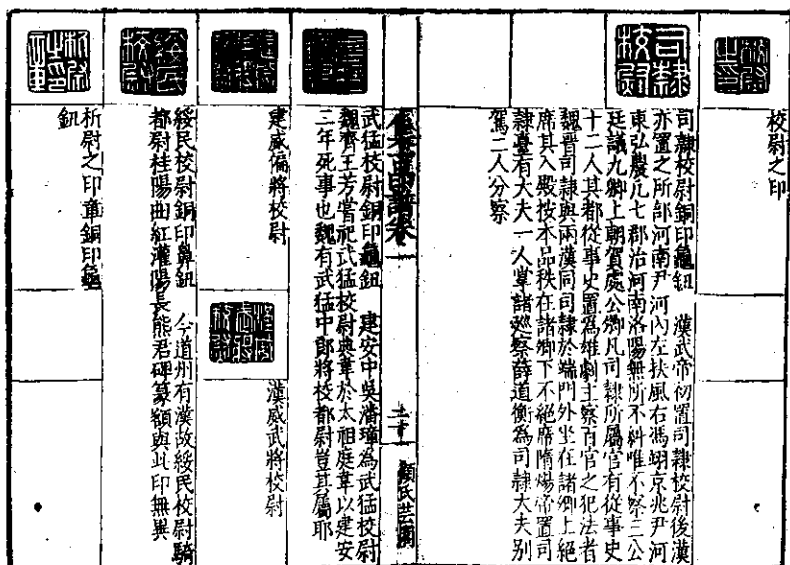 校尉之印
司隸校尉
司隸校尉銅印龜鈕　漢武帝初置司隸校尉後漢
亦置之所部河南尹河內左扶風右馮翊京兆尹河
東弘農凡七郡治河南洛陽無所不糾唯不察三公
廷議九卿上朝賀處公卿凡司隸所屬官有從事史
十二人其都從事史置為雄劇主察百官之犯法者
魏晉司隸與兩漢同司隸於端門外坐在諸卿上絕
席其入殿按本品秩在諸卿下不絕席隋煬帝置司
隸臺有大夫一人掌諸巡察薛道衡為司隸大夫別
駕二人分察
顧氏芸閣
武猛校尉銅印龜鈕　建安中吳潘璋為武猛校尉
魏齊王芳嘗祀武猛校尉典韋於太祖庭韋以建安
二年死事也魏有武猛中郎將校都尉豈其屬耶
建威偏將校尉
漢威武將校尉
綏民校尉
綏民校尉銅印鼻鈕　今道州有漢故綏民校尉騎
都尉桂陽曲紅灌陽長熊君碑篆額與此印無異
折尉之印章銅印龜
鈕